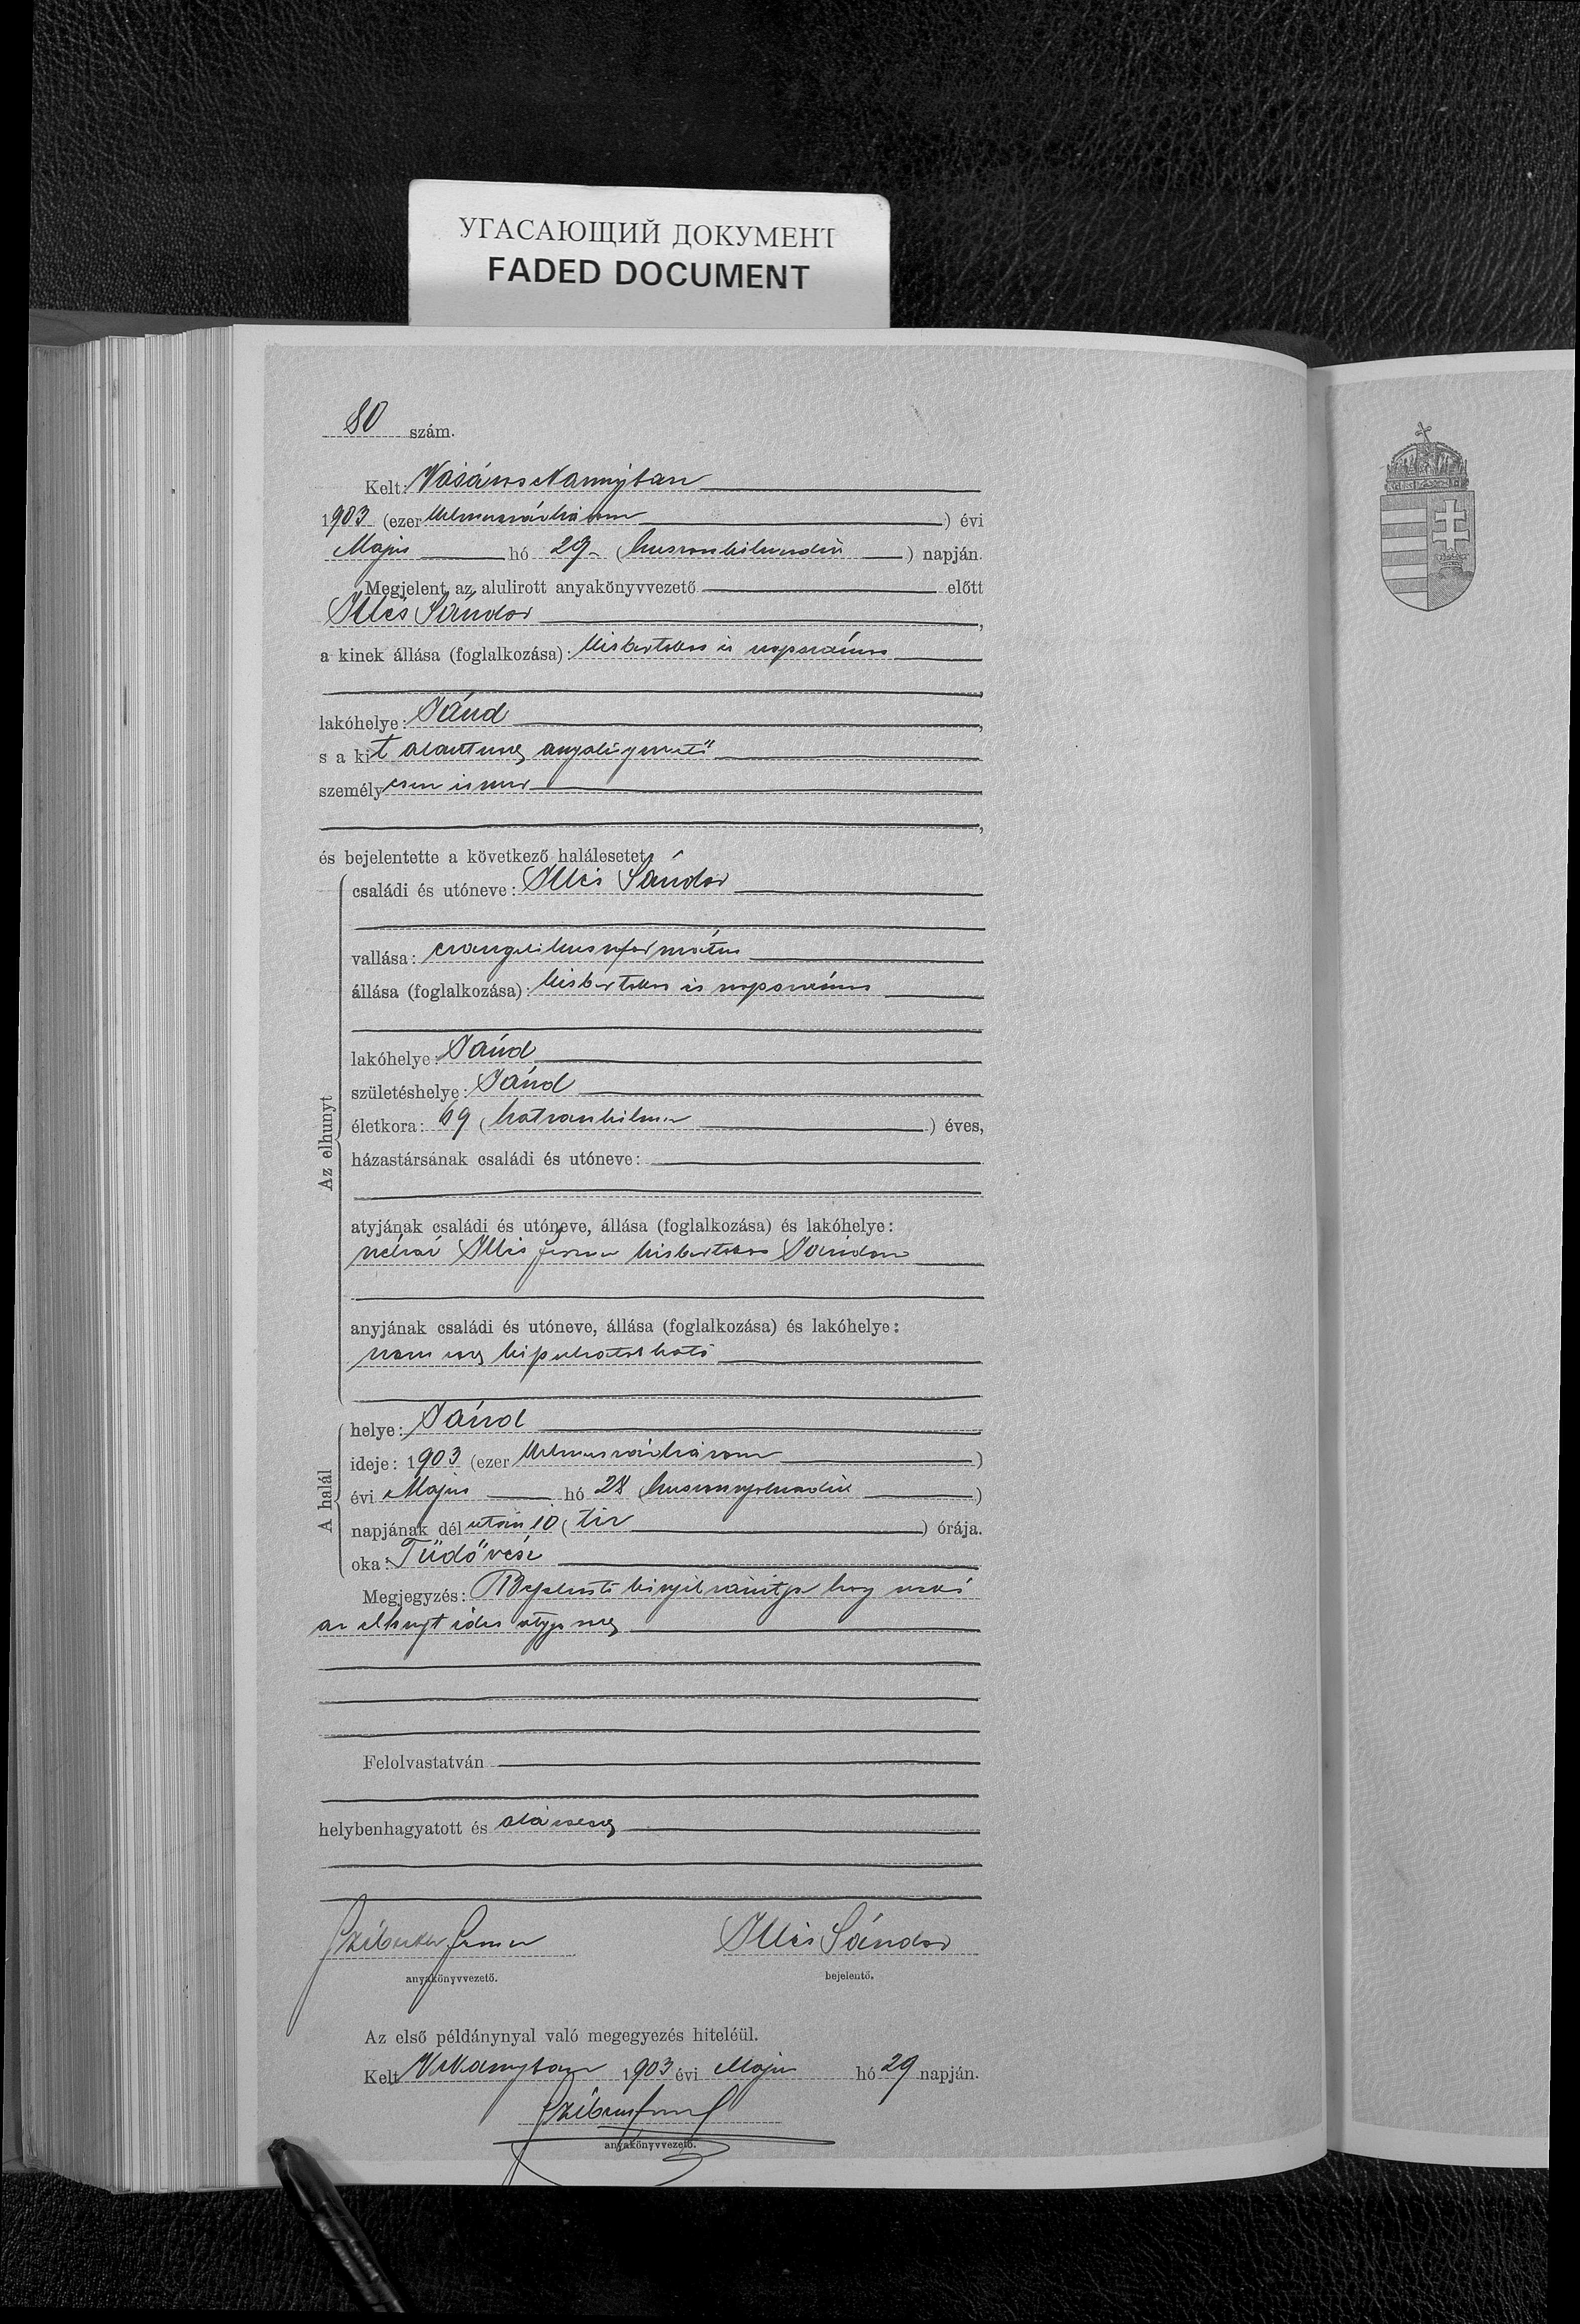 УГАСАЮЩИЙ ДОКУМЕНТ
FADED DOCUMENT
80 szám.
Kelt: Vásárosnaményban
1903 (ezerkilencszázhárom) évi
Május hó 29 (huszonkilencedik) napján.
Megjelent az alulirott anyakönyvvezető előtt
Illés Sándor,
a kinek állása (foglalkozása): kisbirtokos és napszámos
lakóhelye: Jánd,
s a kit
személyesen ismer
és bejelentette a következő halálesetet:
Az elhunyt
családi és utóneve: Illés Sándor
vallása: evangelikus református
állása (foglalkozása): kisbirtokos és napszámos
lakóhelye: Jánd
születéshelye: Jánd
életkora: 69 (hatvankilenc) éves,
házastársának családi és utóneve:
atyjának családi és utóneve, állása (foglalkozása) és lakóhelye:
néhai Illés kisbirtokos Jándon
anyjának családi és utóneve, állása (foglalkozása) és lakóhelye:
nem volt kipuhatolható
A halál
helye: Jánd
ideje: 1903 (ezerkilencszázhárom)
évi Május hó 28 (huszonnyolcadik)
napjának délután 10 (tíz) órája.
oka: Tüdővész
Megjegyzés: Bejelentő kinyilvánítja hogy neki
az elhunyt édes atyja volt
Felolvastatván
helybenhagyatott és aláíratott
Illés Sándor
anyakönyvvezető. bejelentő.
Az első példánynyal való megegyezés hiteléül.
Kelt VNaményban 1903 évi Május hó 29 napján.
anyakönyvvezető.